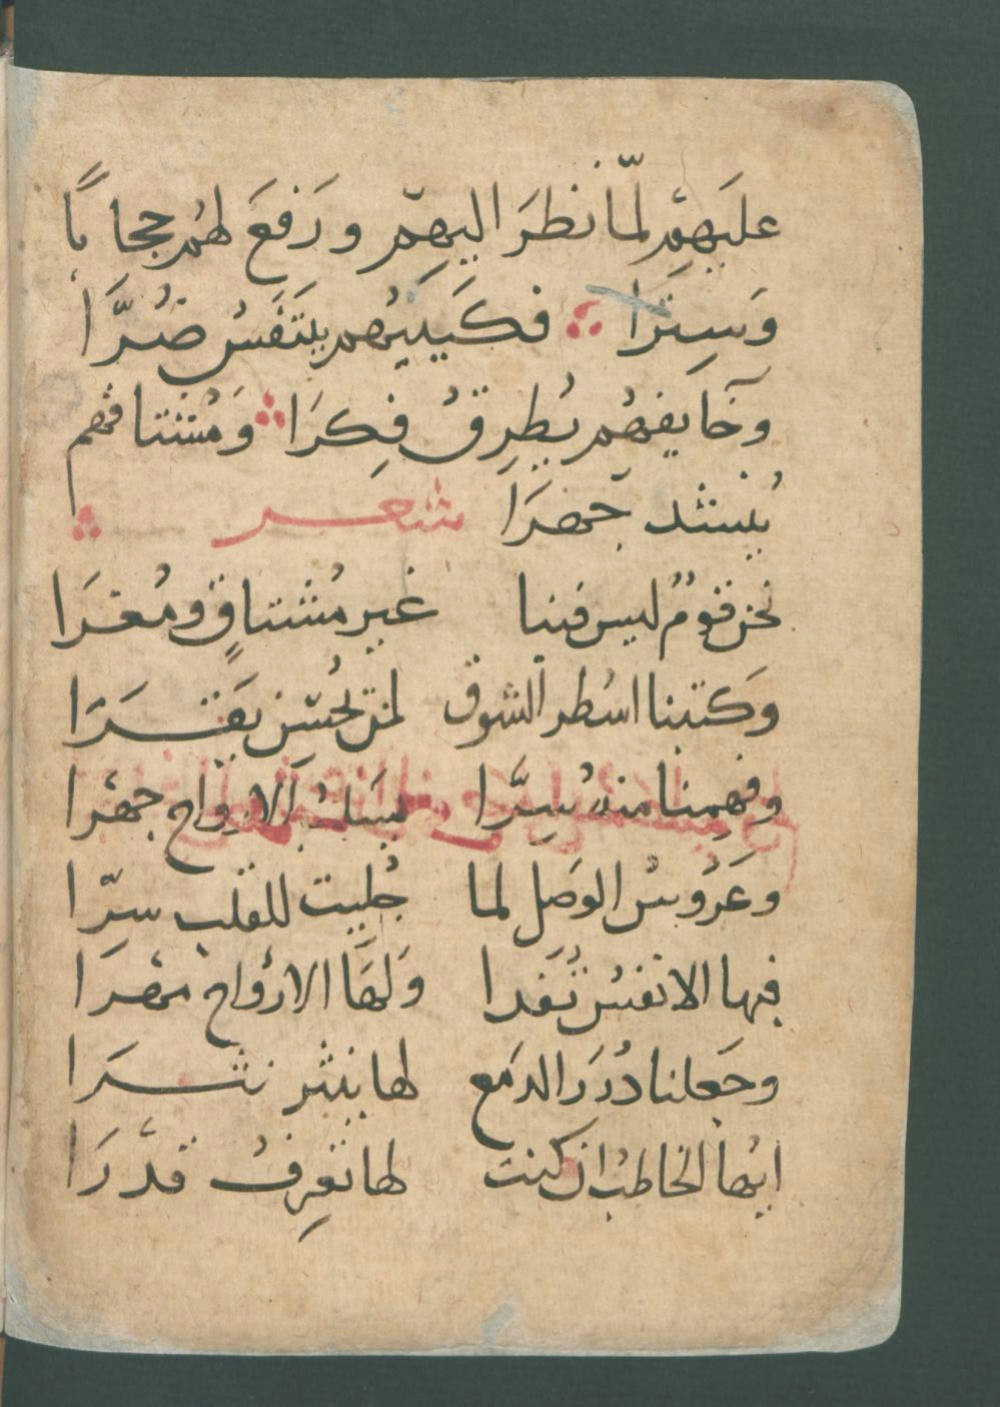 عليهم لمّا نظر اليهم ورفع لهم حجابًا
وسترا ∴ فكييبهم يتنفس ضُرًّا
وخايفهم يُطرِقُ فِكرَا ∴ ومُشتاقهم
يُنشد جَهرَا شعر ∴
نحن قومٌ ليس فينا غير مُشتاقٍ ومُغرَا
وكتبنا اسْطر الشوق لمن يُحسن يَقرَا
وفهمنا منه سِرًّا الارواح جهرَا
وعَرُوسُ الوصل لما جُليت للقلب سِرًّا
فيها الانفسُ تُفدا ولها الارواح مهرَا
وجعلنا دُرَرَ الدمع لها ينثر نثرَا
ايها الخاطب ان كنت لها تعرِفُ قدْرَا